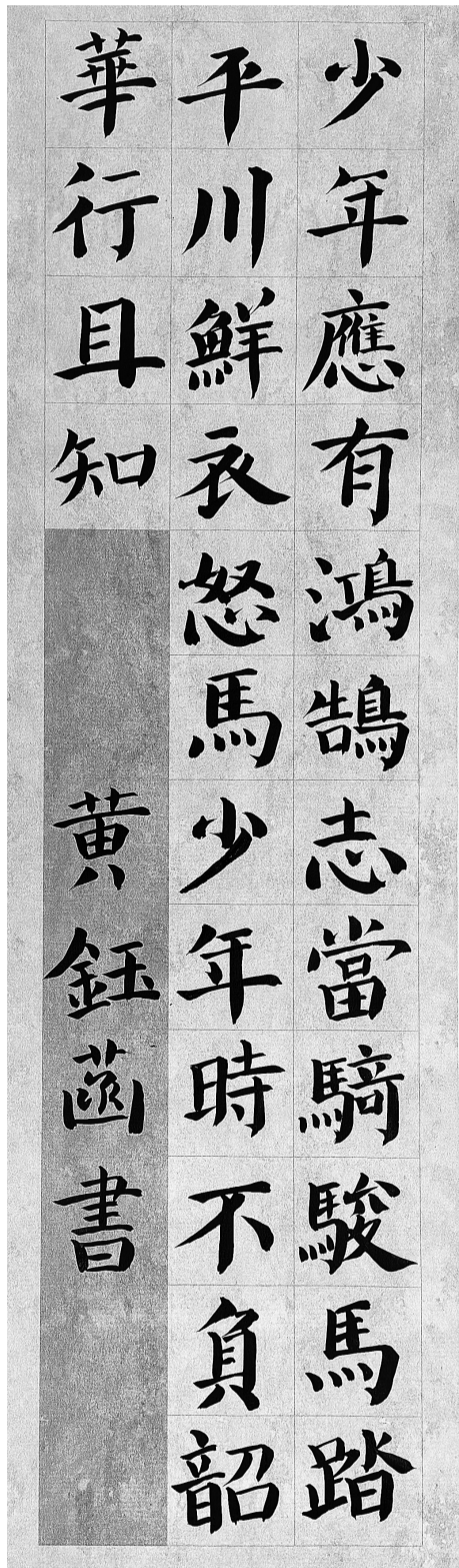 少年應有鴻鵠志當騎駿馬踏
平川鮮衣怒馬少年時不負韶
華行且知
黄鈺菡書